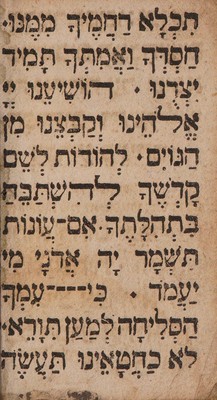 תִכְלָא רַחֲמֶיךָ מִמֶּנּוּ·
חַסְדְּךָ וַאֲמִתְּךָ תָּמִיד
יִצְּרֻנוּ · הוֹשִׁיעֵנוּ יְיָ
אֱלֹהֵינוּ וְקַבְּצֵנוּ מִן
הַגּוֹיִם · לְהוֹדוֹת לְשֵׁם
קָדְשֶׁךָ לְהִשְׁתַּבֵּחַ
בִּתְהִלָּתֶךָ · אִם־עֲוֹנוֹת
תִּשְׁמָר יָהּ אֲדֹנָי מִי
יַעֲמֹד · כִּי־־־־עִמְּךָ
הַסְּלִיחָה לְמַעַן תִּוָּרֵא·
לֹא כַחֲטָאֵינוּ תַּעֲשֶׂה